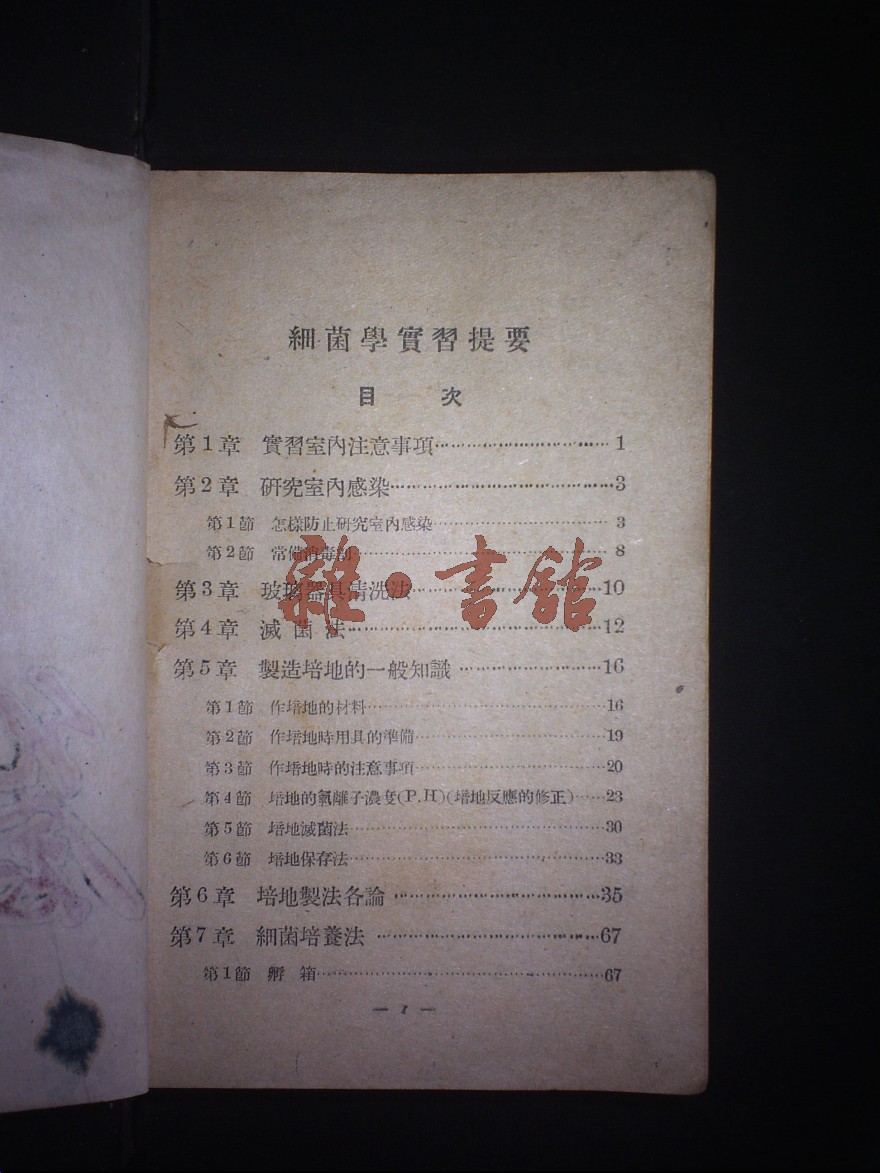 細菌學實習提要
目 次
第1章 實習室內注意事項……………………1
第2章 研究室內感染……………………3
第1節 怎樣防止研究室內感染……………………3
第2節 常備消毒劑……………………8
第3章 玻璃器具清洗法……………………10
第4章 滅菌法……………………12
第5章 製造培地的一般知識……………………16
第1節 作培地的材料……………………16
第2節 作培地時用具的準備……………………19
第3節 作培地時的注意事項……………………20
第4節 培地的氫離子濃度(P.H)(培地反應的修正)……23
第5節 培地滅菌法……………………30
第6節 培地保存法……………………33
第6章 培地製法各論……………………35
第7章 細菌培養法……………………67
第1節 孵箱……………………67
— 1 —
雜·書館